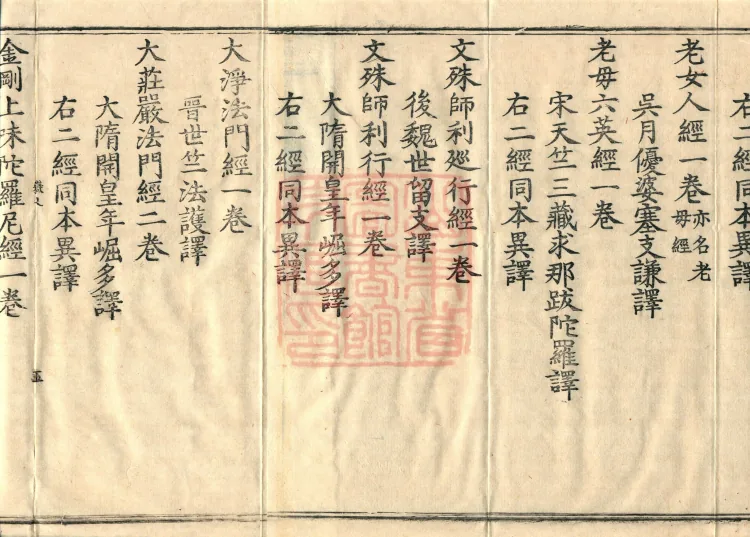 右二經同本異譯
老女人經一卷亦名老母經
吳月優婆塞支謙譯
老母六英經一卷
宋天竺三藏求那跋陀羅譯
右二經同本異譯
文殊師利巡行經一卷
後魏世留支譯
文殊師利行經一卷
大隋開皇年崛多譯
右二經同本異譯
大淨法門經一卷
晉世竺法護譯
大莊嚴法門經二卷
大隋開皇年崛多譯
右二經同本異譯
金剛上味陀羅尼經一卷
五